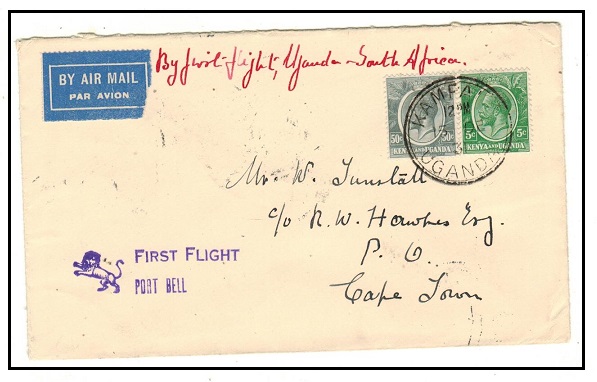 By first flight, Uganda - South Africa.
BY AIR MAIL
PAR AVION
KAMPA
UGANDA
50c 50c
KENYA AND UGANDA
5c 5c
KENYA AND UGANDA
Mr. W. Tunstall
c/o R. W. Hawkes Esq.
P. O.
Cape Town
FIRST FLIGHT
PORT BELL